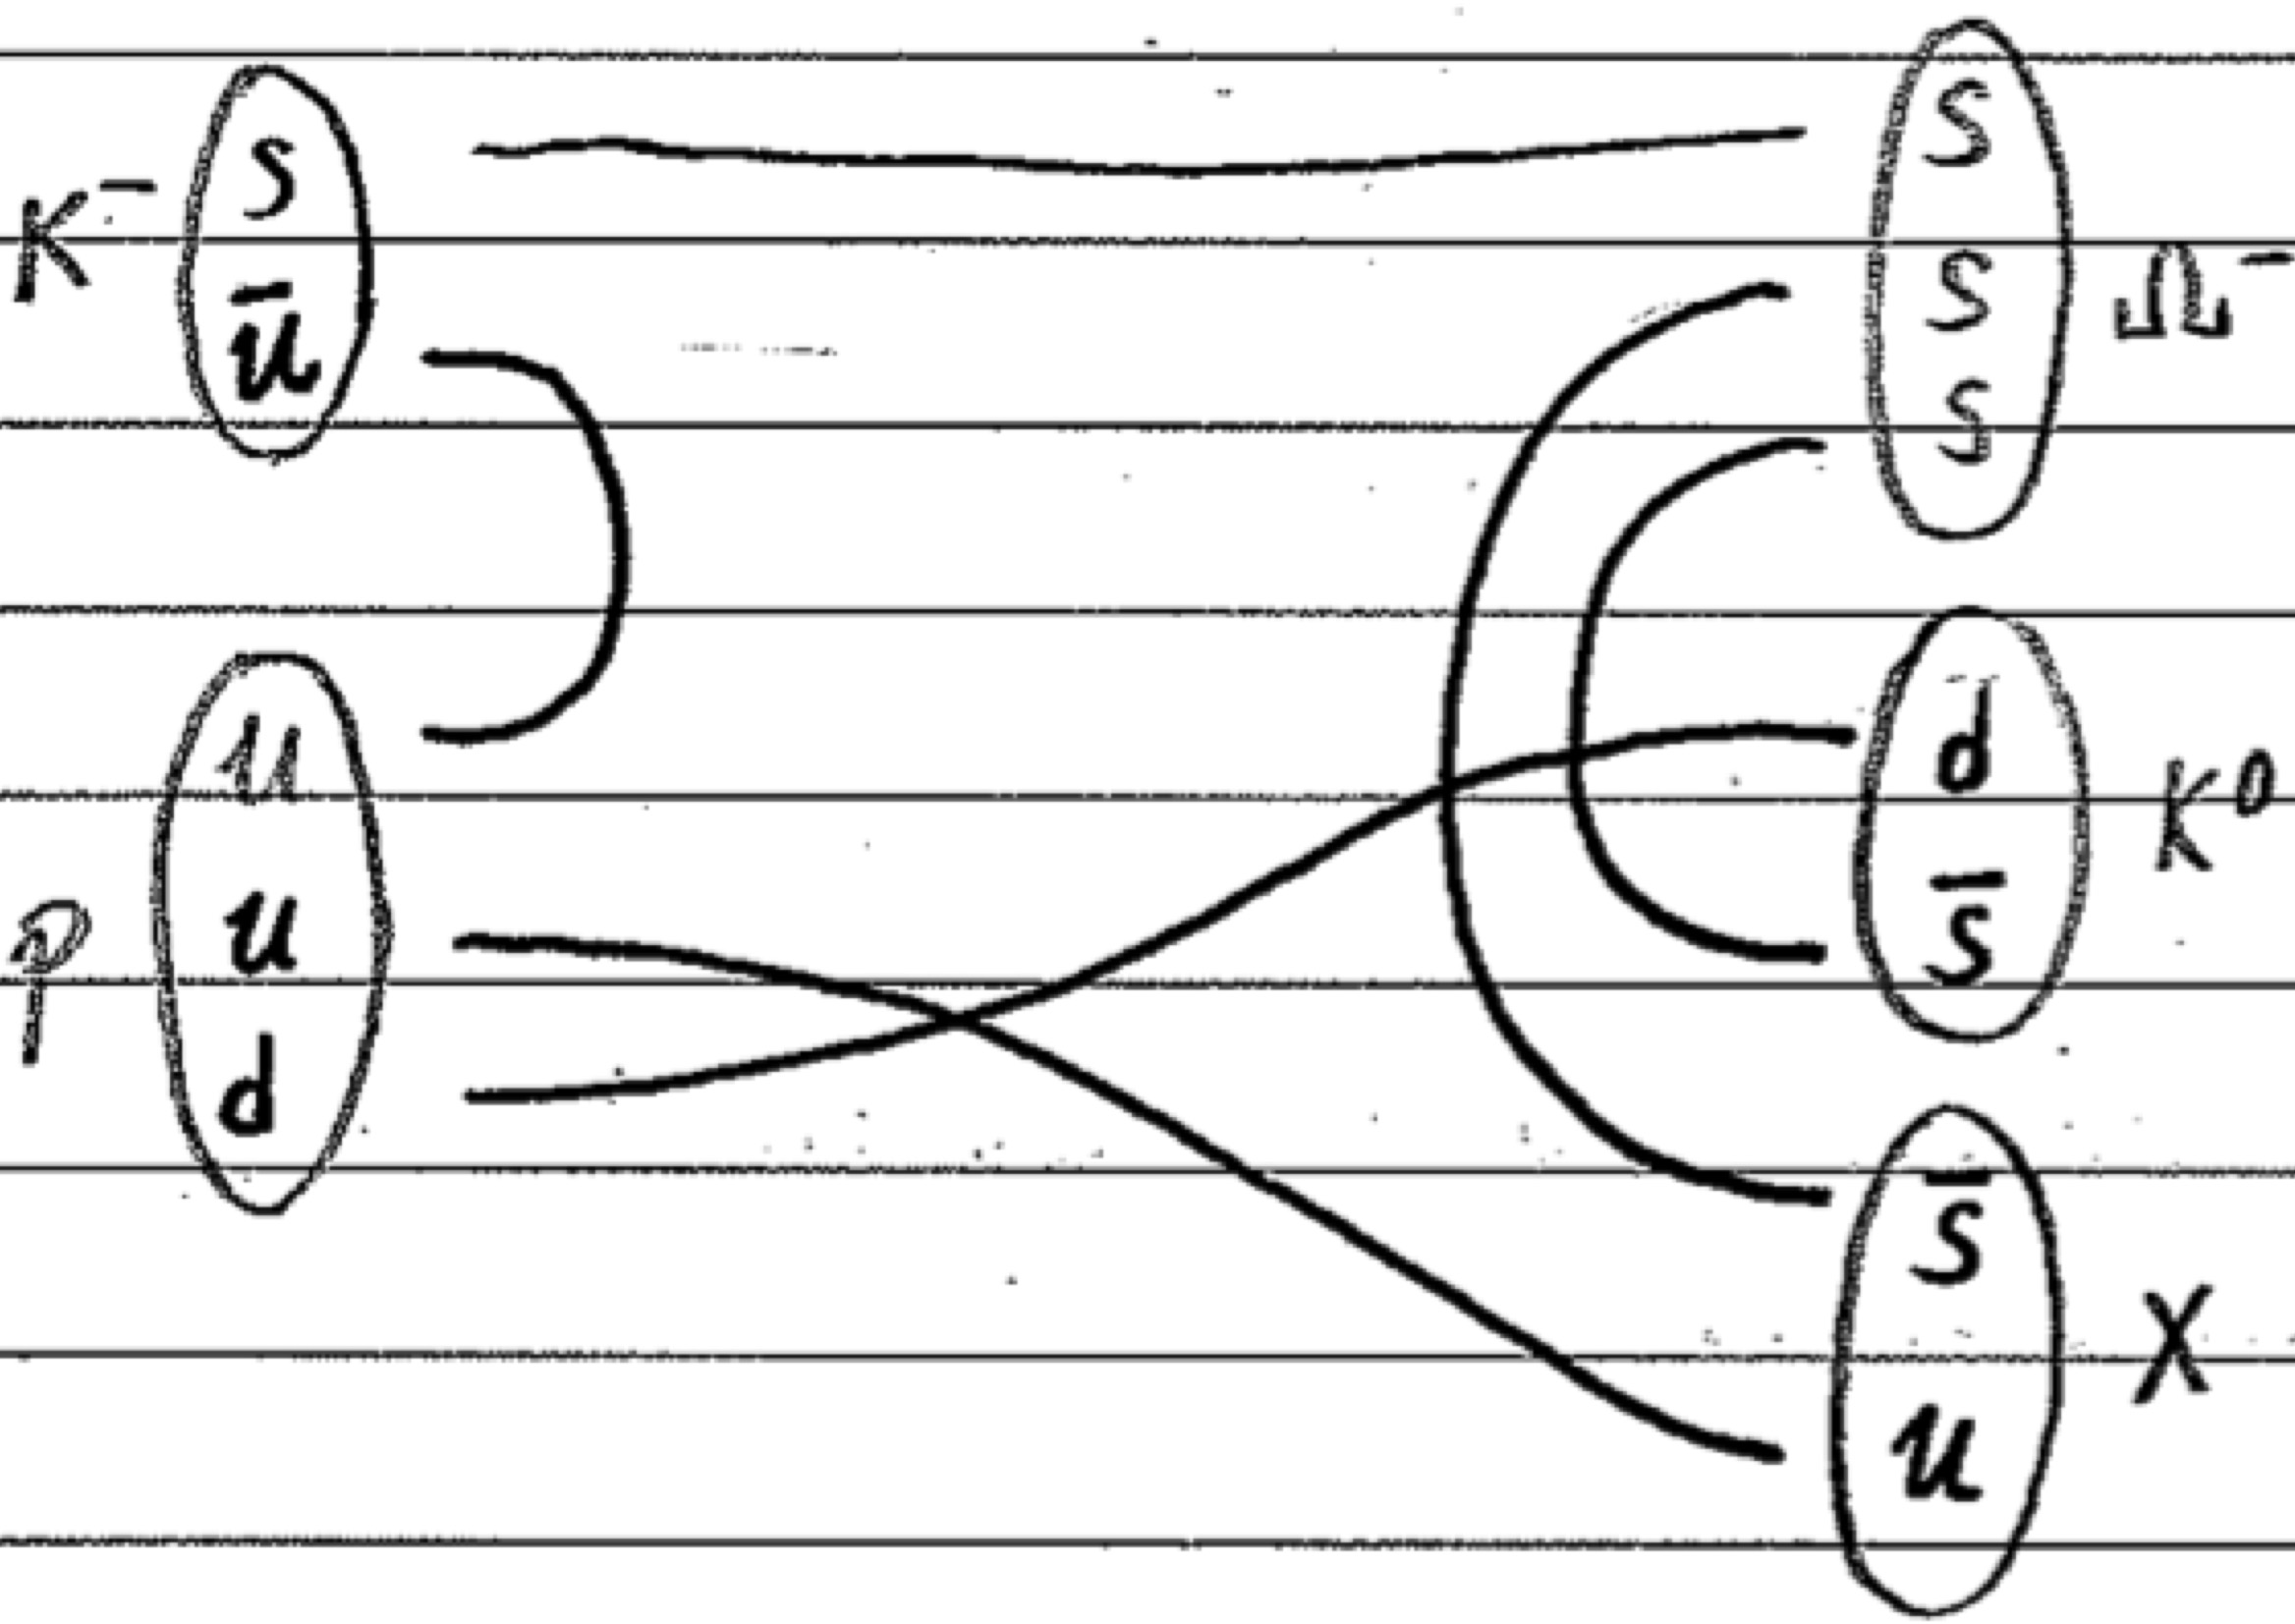 K⁻ s ū
p u u d
s s s Ω⁻
d s̄ K⁰
s̄ u X